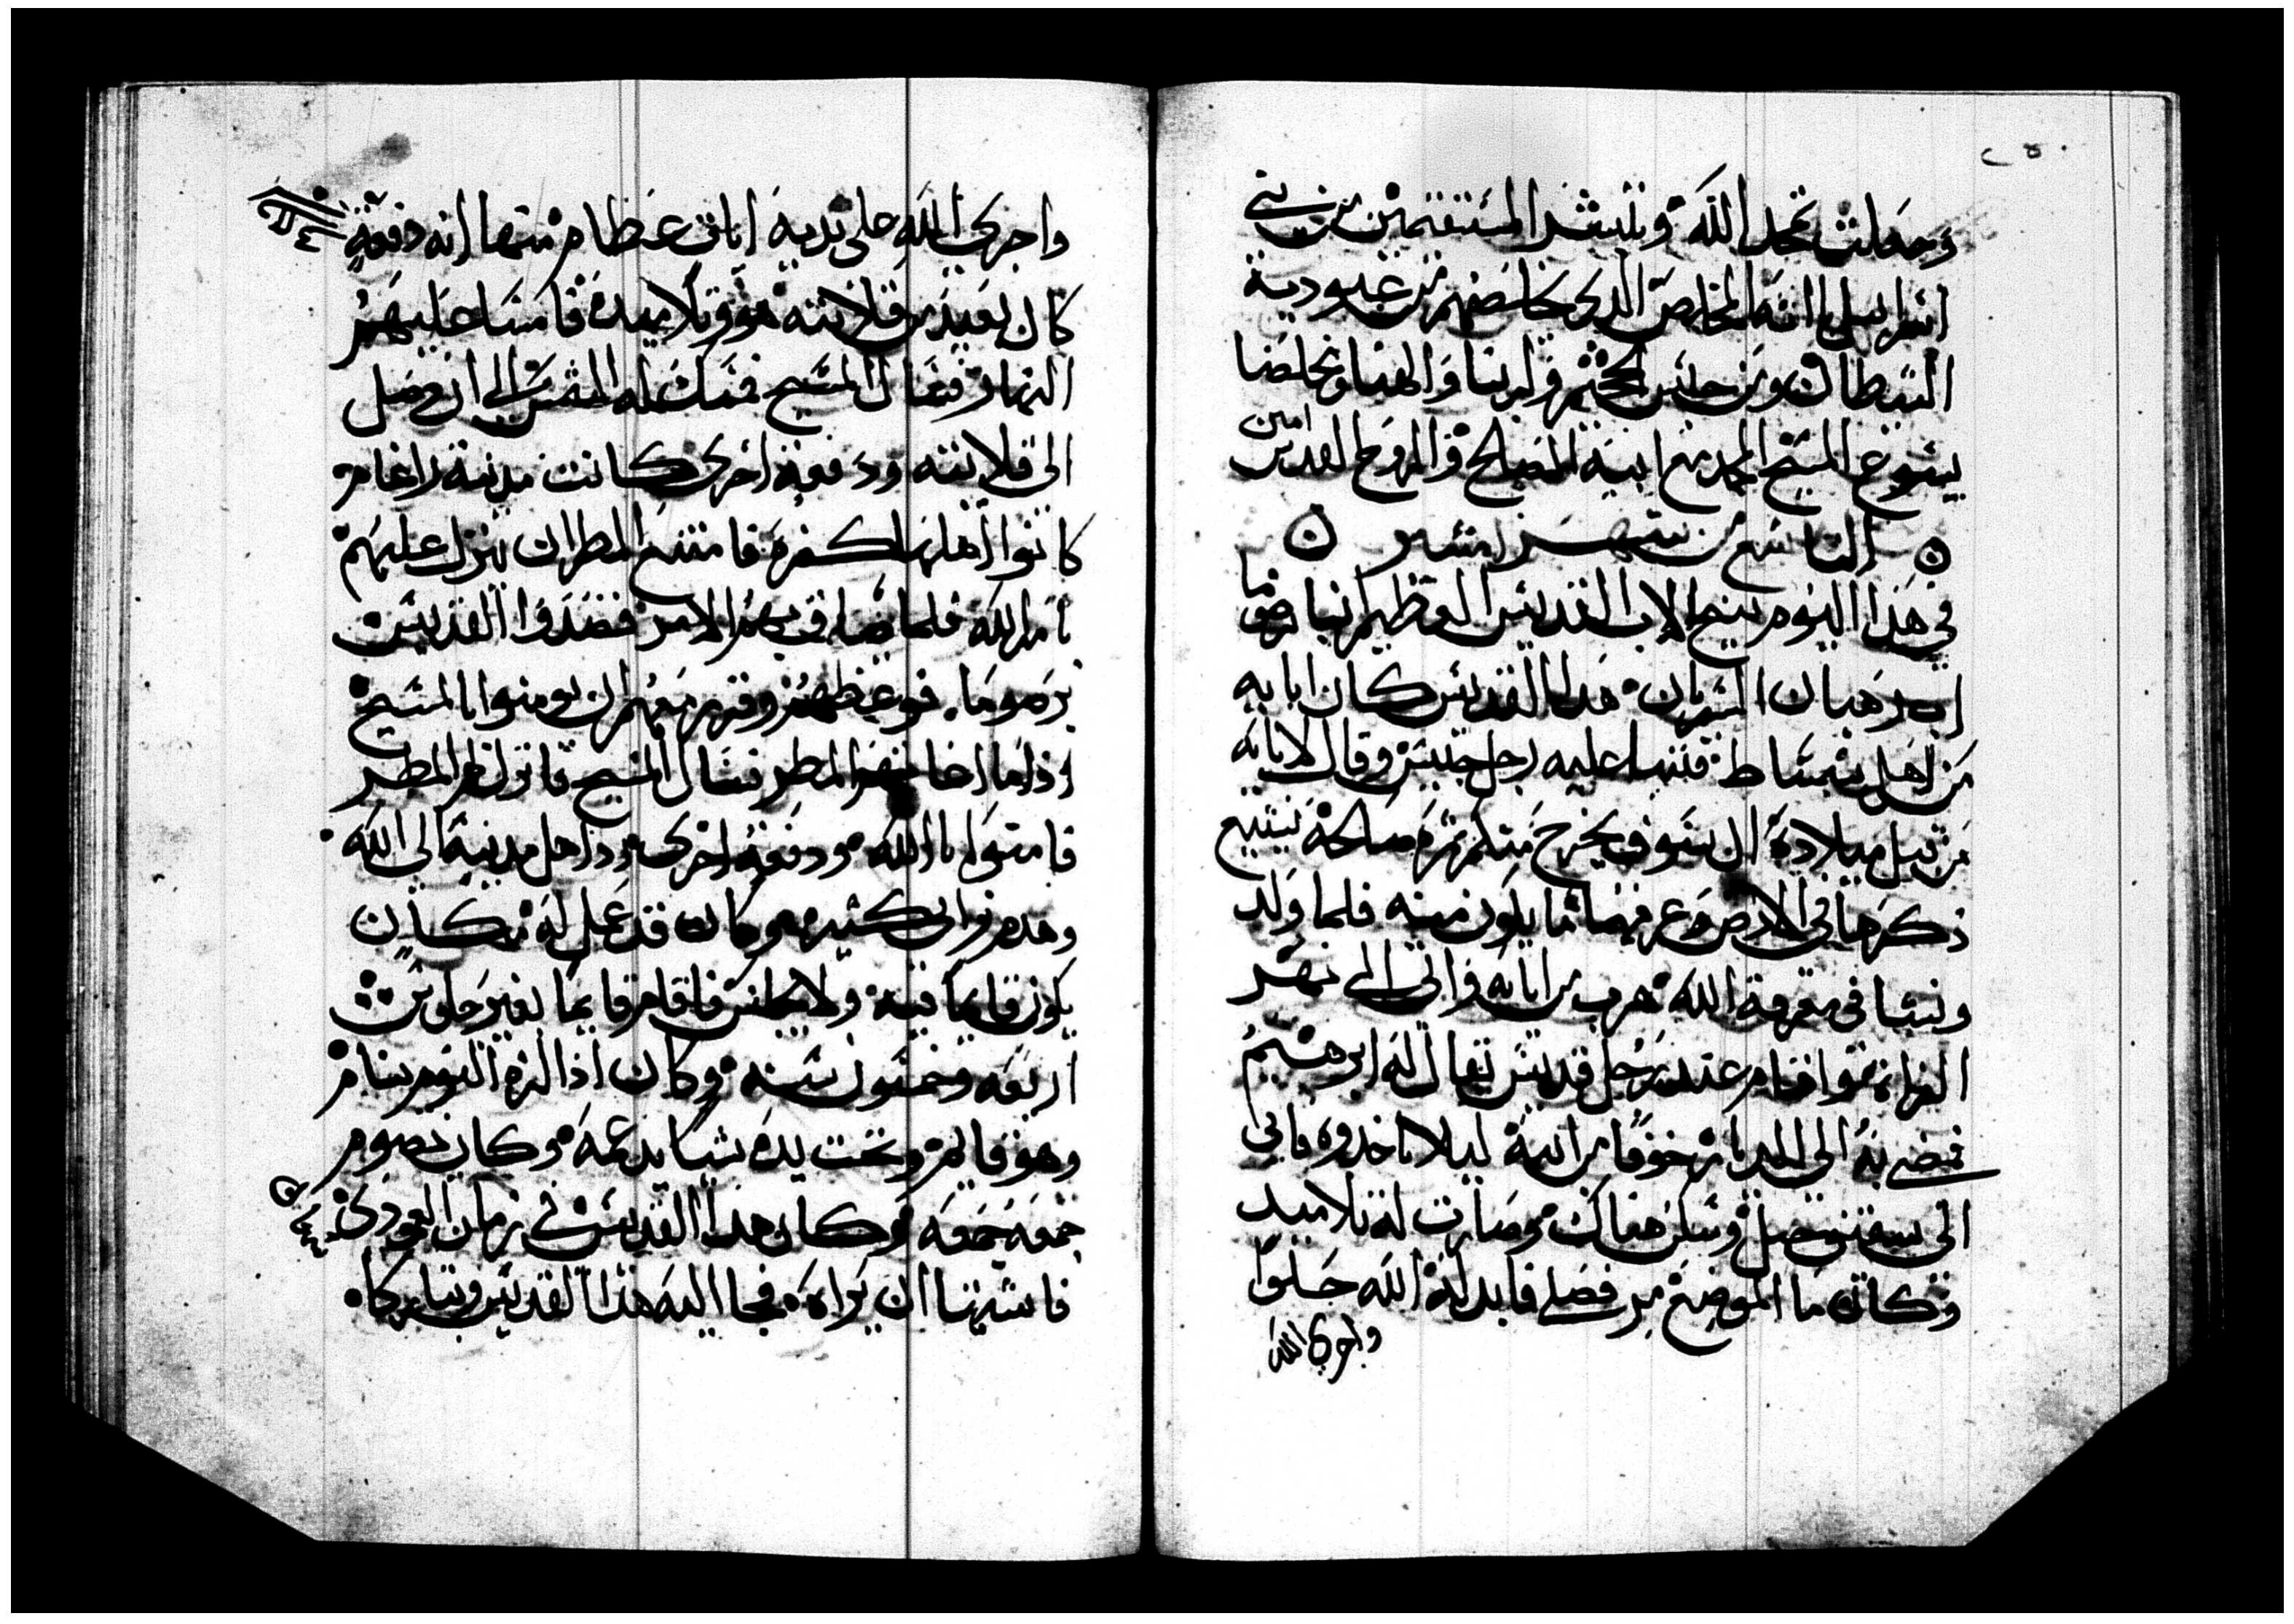 وجعلت تحمد الله وتبشر المستنقمين من بني
اسرايل انه المخلص الدي يخلصهم من عبودية
الشيطان ومن حبس الجحيم ولربنا والهنا ومخلصنا
يسوع المسيح المجد مع ابيه الصالح والروح القدس امين
التاسع من شهر امشير
في هدا اليوم تنيح الاب القديس العظيم انبا برصوما
اب رهبان السريان هدا القديس كان ابايه
من اهل شمشاط فتنبا عليه رجل حبيس وقال لابايه
من قبل ميلاده ان سوف يخرج منكم ثمره صالحة يشيع
دكرها في الارض وعرفهما ما يكون منه فلما ولد
ونشا في معرفة الله هرب من ابايه واتي الي نهر
الفراه واقام عند رجل قديس يقال له ابرهيم
فمضى به الي الدير خوفا من ابيه ليلا ياخدوه فاتى
الى وسكن هناك وصارت له تلاميد
وكان ما الموضع مر فصلي فابدله الله حلوا
واجري الله
واجرى الله على يديه ايات عظام منها انه دفعة
كان بعيد من قلايته هو وتلاميده فامسا عليهم
النهار فسال المسيح فمسك له الشمس الى ان وصل
الى قلايته ودفعة اخرى كانت مدينة
كانوا اهلها كفره فامتنع المطر ان ينزل عليهم
بامر الله فلما ضاق بهم الامر قصدوا القديس
برصوما فوعظهم وقرر معهم ان يومنوا بالمسيح
اذا ما اجاهم المطر فسال المسيح فانزل لهم المطر
فامنوا بالله ودفعة اخرى رد اهل مدينة الى الله
وهدم برابى كثيره وكان قد عمل له مكان
يكون قايما فيه ولا يجلس فاقام قايما بغير جلوس
اربعه وخمسون سنه وكان اذا لزم النوم ينام
وهو قايم وتحت يده شيا يدعمه وكان يصوم
جمعه جمعه وكان هدا القديس في زمان العمودى
فاشتها ان يراه فجا اليه هدا القديس وتباركا